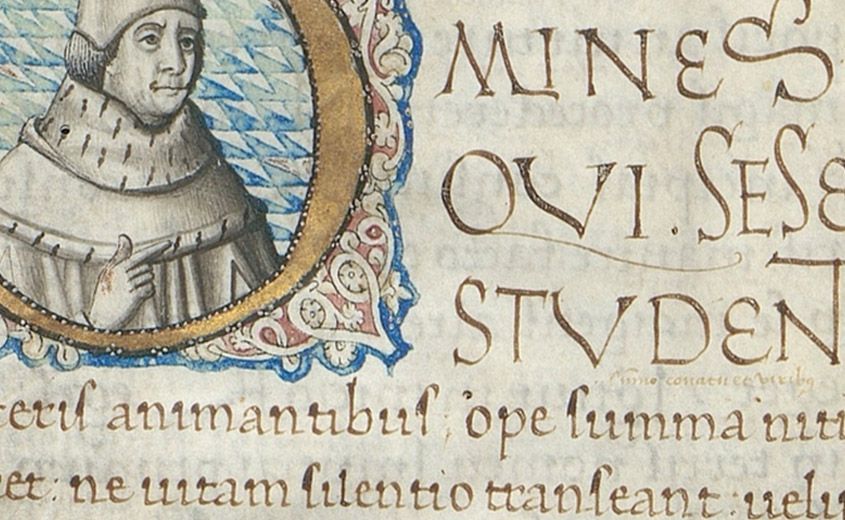 MINES
QVI. SESE
STVDENT
summo conatu et viribus
teris animantibus : ope summa niti
et : ne uitam silentio transeant : uelu